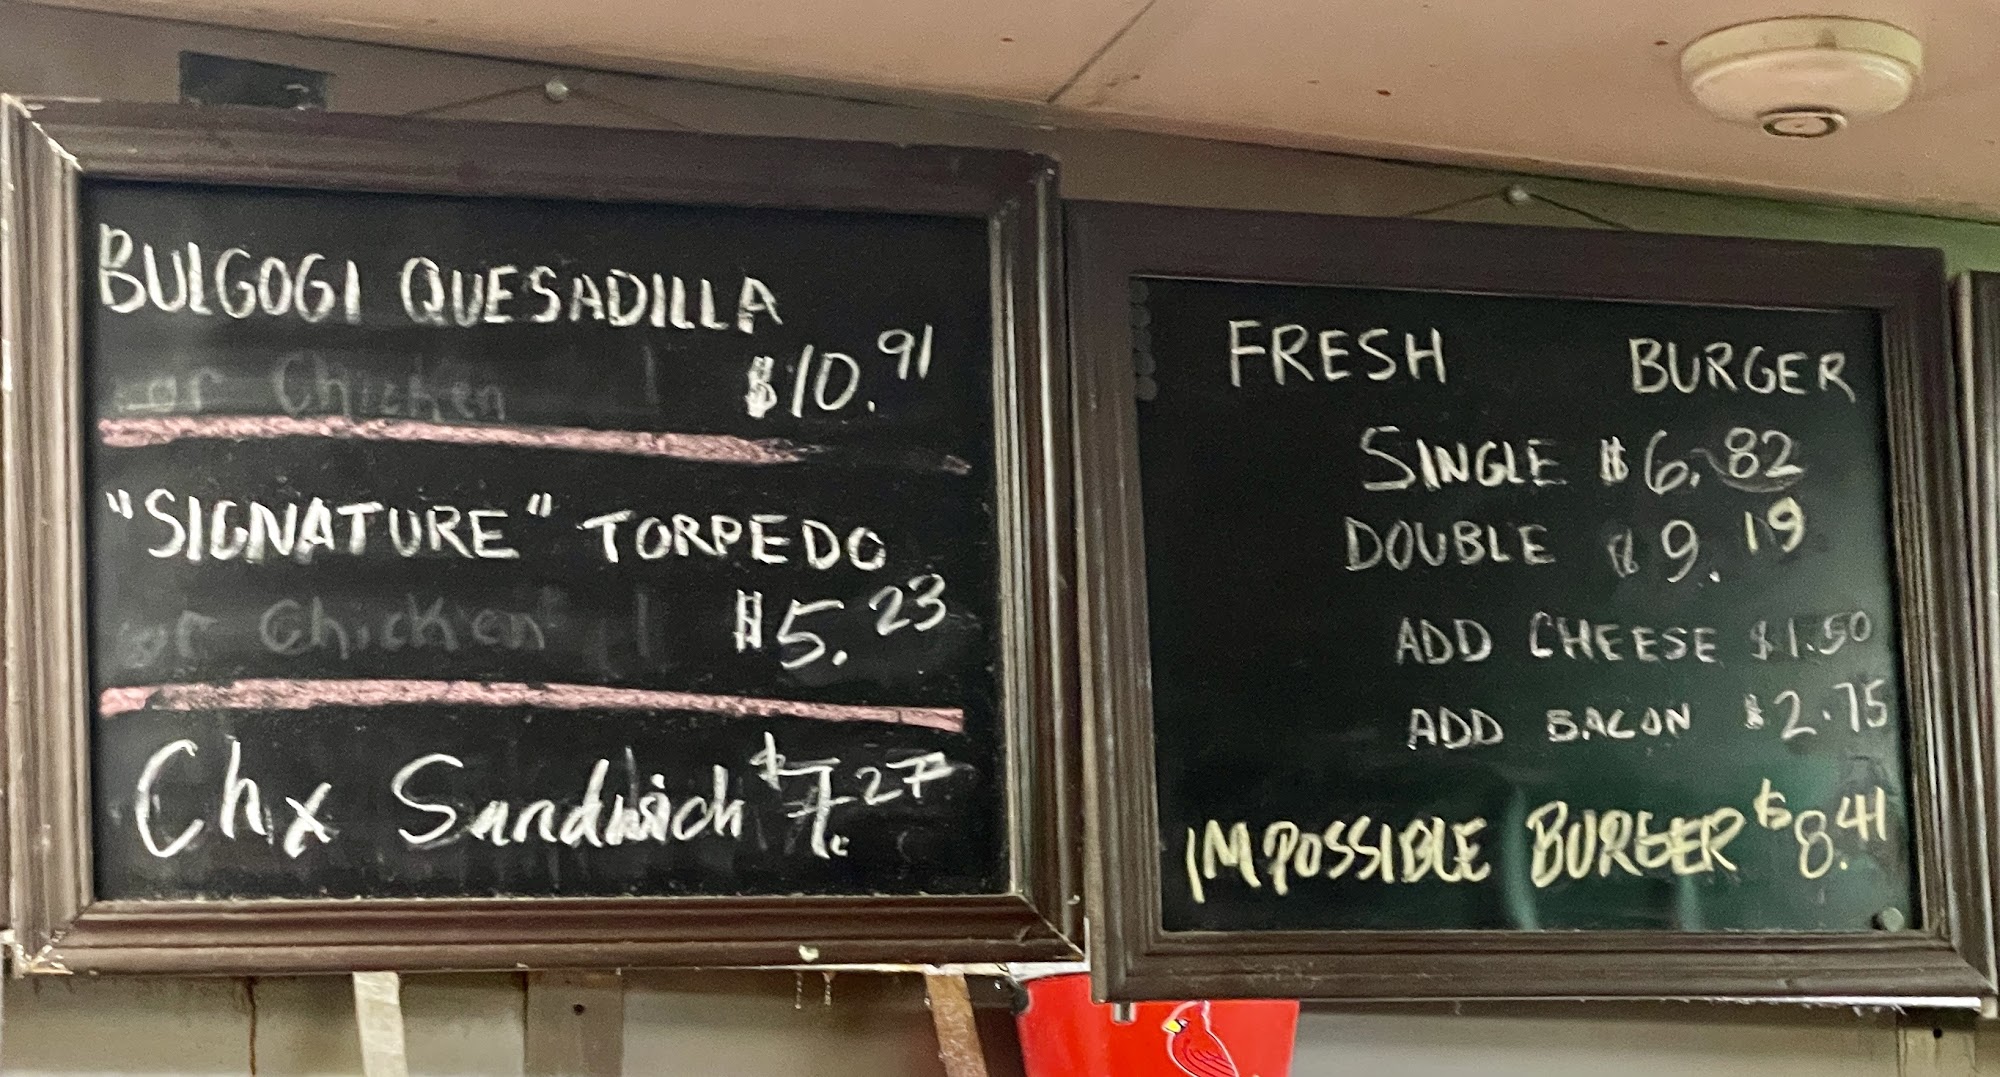 BULGOGI QUESADILLA
or Chicken $10.91
"SIGNATURE" TORPEDO
or Chicken $5.23
Chx Sandwich $7.27
FRESH BURGER
SINGLE $6.82
DOUBLE $9.19
ADD CHEESE $1.50
ADD BACON $2.75
IMPOSSIBLE BURGER $8.41